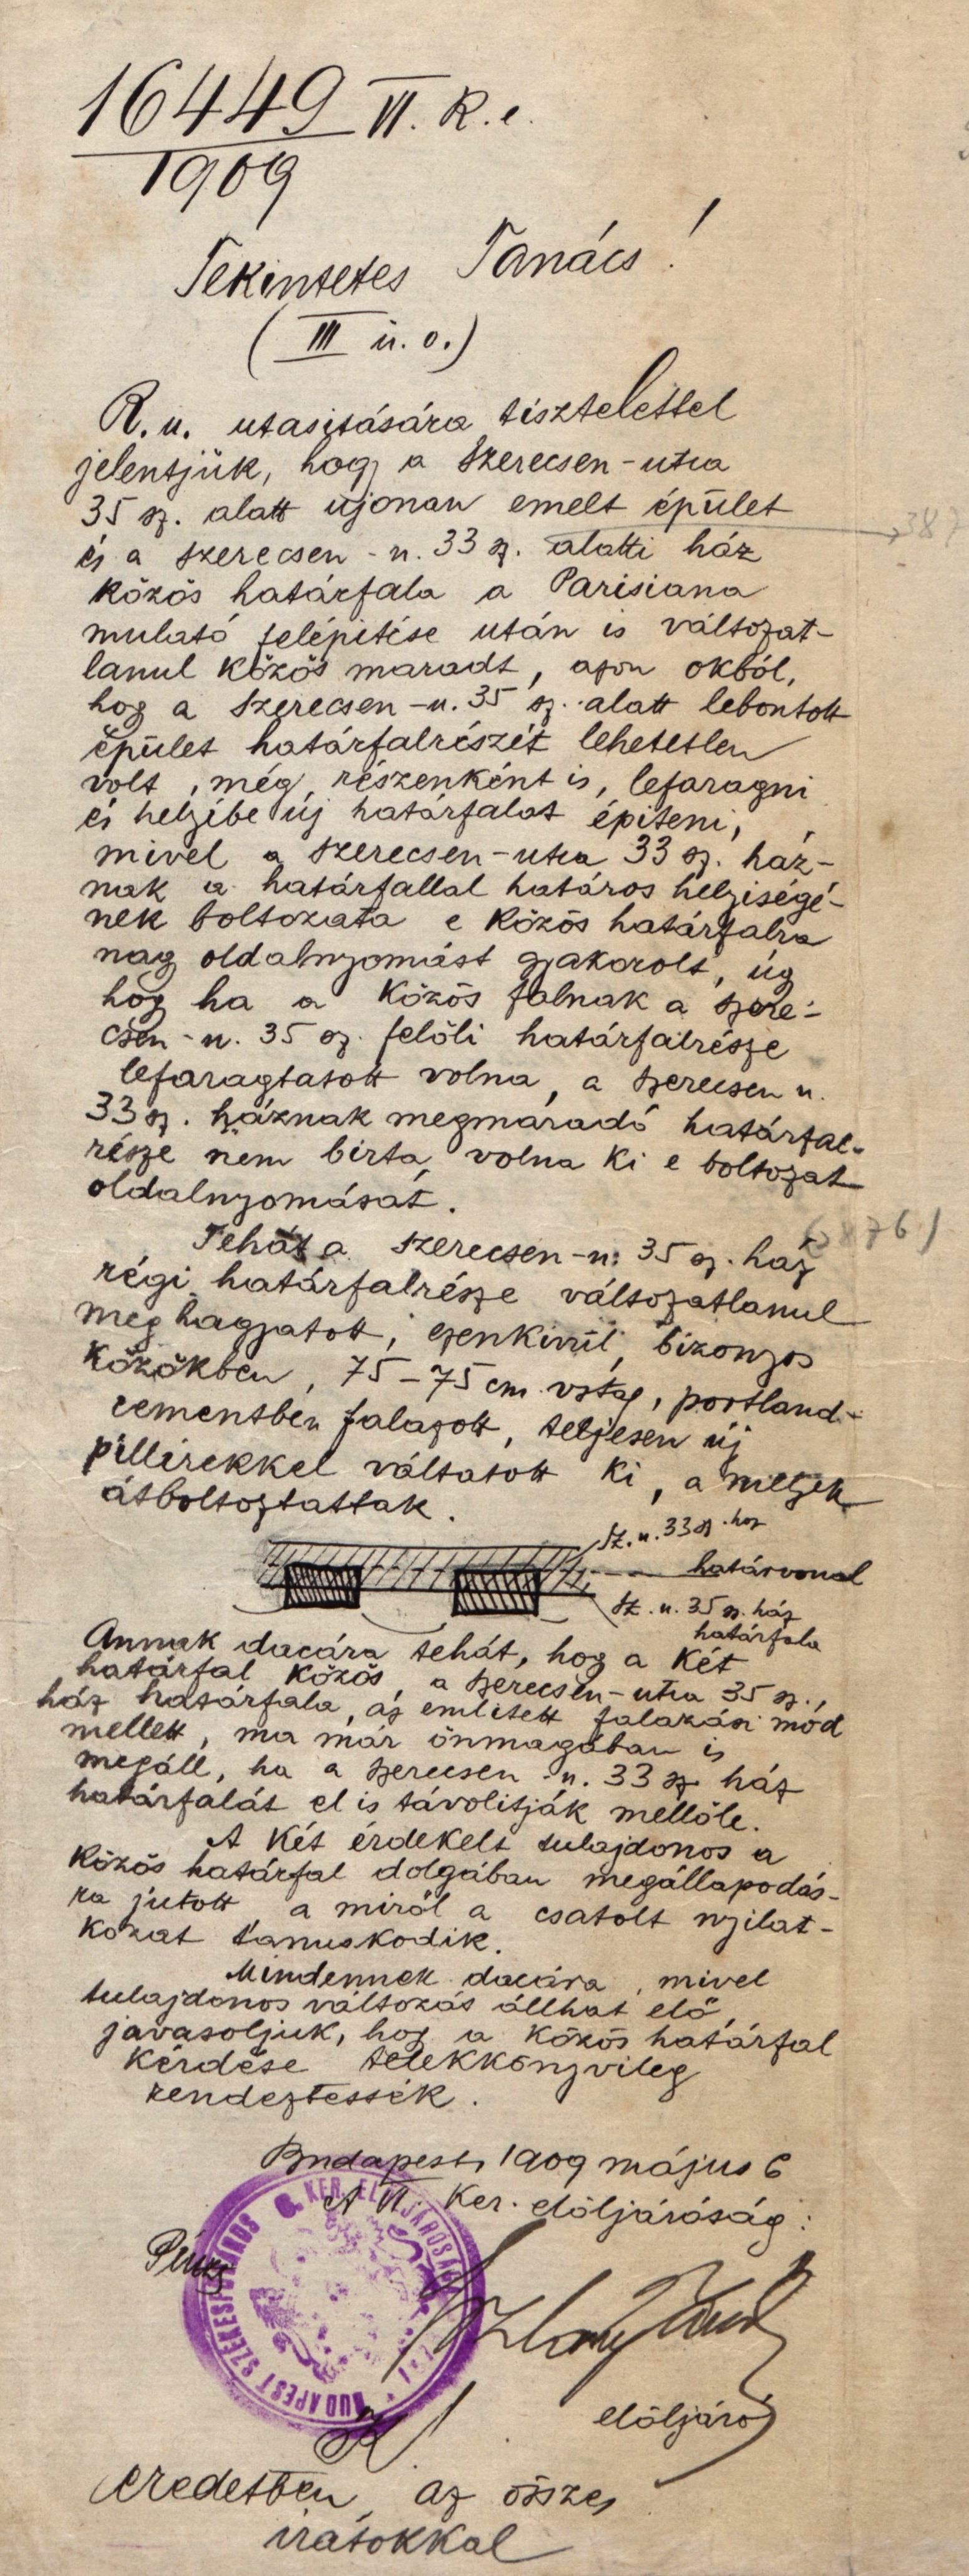 16449 VI. K. e.
1909
Tekintetes Tanács!
(III ü. o.)
R. u. utasitására tisztelettel
jelentjük, hogy a Szerecsen-utca
35 sz. alatt ujonan emelt épület
és a Szerecsen-u. 33 sz. alatti ház
közös határfala a Parisiana
mulató felépitése után is változat-
lanul közös maradt, azon okból,
hogy a Szerecsen-u. 35 sz. alatt lebontott
épület határfalrészét lehetetlen
volt, még részenként is, lefaragni
és helyébe új határfalat épiteni,
mivel a Szerecsen-utca 33 sz. ház-
nak a határfallal határos helyiségé-
nek boltozata e közös határfalra
nagy oldalnyomást gyakorolt, úgy
hogy ha a közös falnak a szere-
csen-u. 35 sz. felöli határfalrésze
lefaragtatott volna, a szerecsen u.
33 sz. háznak megmaradó határfal-
része nem birta volna ki e boltozat
oldalnyomását.
Tehát a Szerecsen-u. 35 sz. ház
régi határfalrésze változatlanul
meghagyatott, ezenkivül, bizonyos
közökben, 75-75 cm. vstag, portland-
cementben falazott, teljesen új
pillérekkel váltatott ki, a melyek
átboltoztattak.
Sz. u. 33 sz. ház
határvonal
Sz. u. 35 sz. ház
határfala
Annak dacára tehát, hogy a két
határfal közös, a szerecsen-utca 35 sz.,
ház határfala, az emlitett falazási mód
mellett, ma már önmagában is
megáll, ha a szerecsen-u. 33 sz ház
határfalát el is távolitják mellőle.
A két érdekelt tulajdonos a
közös határfal dolgában megállapodás-
ra jutott a miről a csatolt nyilat-
kozat tanuskodik.
Mindennek dacára, mivel
tulajdonos változás állhat elő,
javasoljuk, hogy a közös határfal
kérdése telekkönyvileg
rendeztessék.
Budapest, 1909 május 6
A VI. Ker. elöljáróság:
BUDAPEST SZÉKESFŐVÁROS KER. ELÖLJÁRÓSÁGA
elöljáró
Eredetben az összes
iratokkal